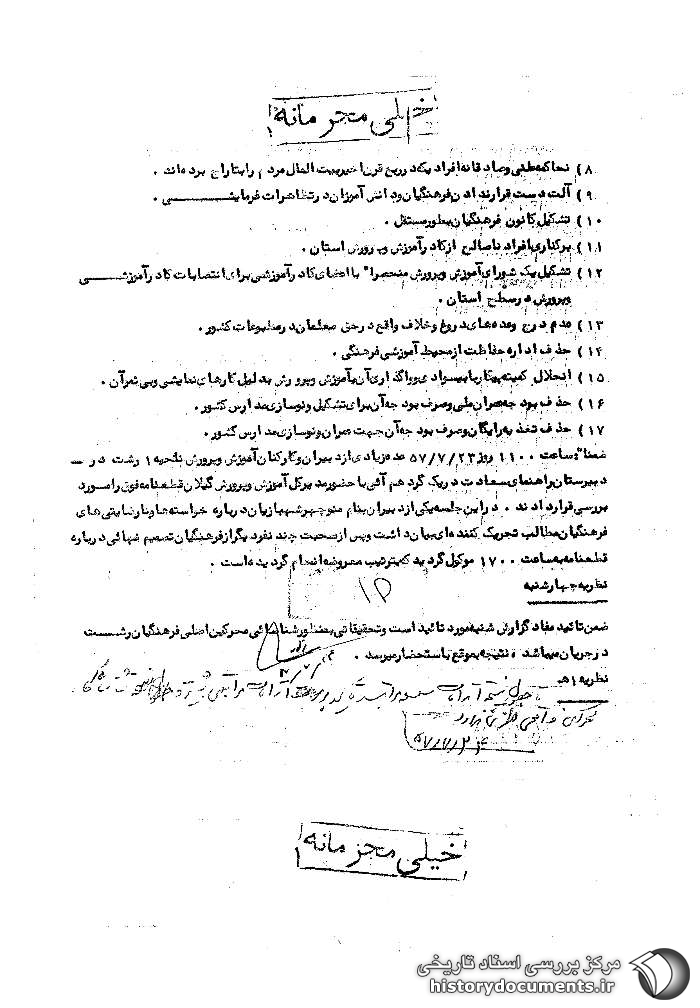 خیلی محرمانه
۸) محاکمه علنی و صادقانه افرادیکه در ربع قرن اخیر بیت المال مردم را بتاراج برده اند .
۹) آلت دست قرار ندادن فرهنگیان و دانش آموزان در تظاهرات فرمایشی .
۱۰) تشکیل کانون فرهنگیان بطور مستقل .
۱۱) برکناری افراد ناصالح از کادر آموزش و پرورش استان .
۱۲) تشکیل یک شورای آموزش و پرورش منحصرا" با اعضای کادر آموزشی برای انتصابات کادر آموزشی
و پرورش در سطح استان .
۱۳) عدم درج وعده های دروغ و خلاف واقع در حق معلمان در مطبوعات کشور .
۱۴) حذف اداره حفاظت از محیط آموزشی فرهنگی .
۱۵) انحلال کمیته پیکار با بیسوادی و واگذاری آن بآموزش و پرورش بدلیل کارهای نمایشی و بی ثمر آن .
۱۶) حذف بودجه عمران ملی و صرف بودجه آن برای تشکیل و نوسازی مدارس کشور .
۱۷) حذف تغذیه رایگان و صرف بودجه آن جهت عمران و نوسازی مدارس کشور .
ضمنا" ساعت ۱۱۰۰ روز ۵۷/۷/۲۳ عده زیادی از دبیران و کارکنان آموزش و پرورش ناحیه ۱ رشت در
دبیرستان راهنمای سعادت در یک گردهم آئی با حضور مدیر کل آموزش و پرورش گیلان قطعنامه فوق را مورد
بررسی قرار دادند . در این جلسه یکی از دبیران بنام منوچهر شهبازیان درباره خواسته ها و نارضایتی های
فرهنگیان مطالب تحریک کننده ای بیان داشت و پس از صحبت چند نفر دیگر از فرهنگیان تصمیم نهائی درباره
قطعنامه به ساعت ۱۷۰۰ موکول گردید که بترتیب معروضه انجام گردیده است .
نظریه چهارشنبه
ضمن تائید مفاد گزارش شنبه مورد تائید است و تحقیقاتی بمنظور شناسائی محرکین اصلی فرهنگیان رشت
در جریان میباشد نتیجه بموقع باستحضار میرسد .
نظریه ۱ هـ
۵۷/۷/۲۴
خیلی محرمانه
مرکز بررسی اسناد تاریخی
historydocuments.ir